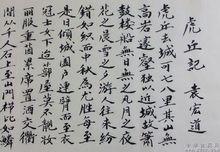 虎丘記 袁宏道
虎丘去城可七八里其山無
高岩邃壑獨以近城故簫
鼓樓船無日無之凡月之夜
花之晨雪之夕游人往來紛
錯如織而中秋為尤勝每至
是日傾城闔户連臂而至衣
冠士女下迨蔀屋莫不靚妝
麗服重茵累席置酒交衢
間從千人石上至山門櫛比如鱗